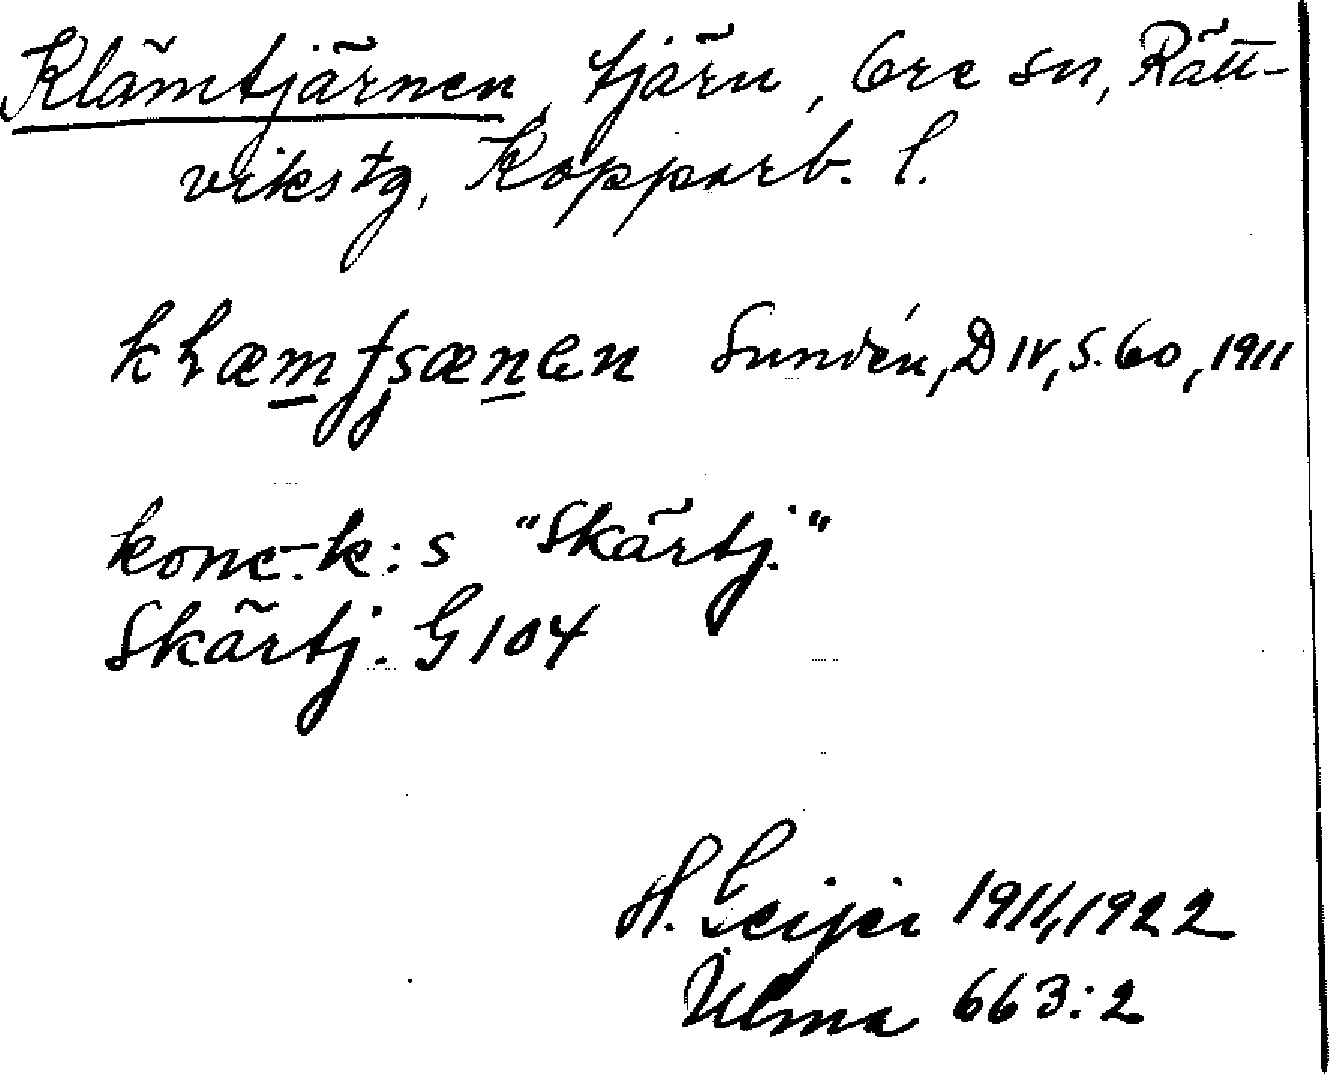 Klämtjärnen, tjärn, Ore sn, Rätt-
vikstg, Kopparb. l.
Sundén, D IV, S. 60, 1911
konc.-k:s "Skärtj."
Skärtj. G 104
H. Geijer 1911, 1922
Ulma 663:2